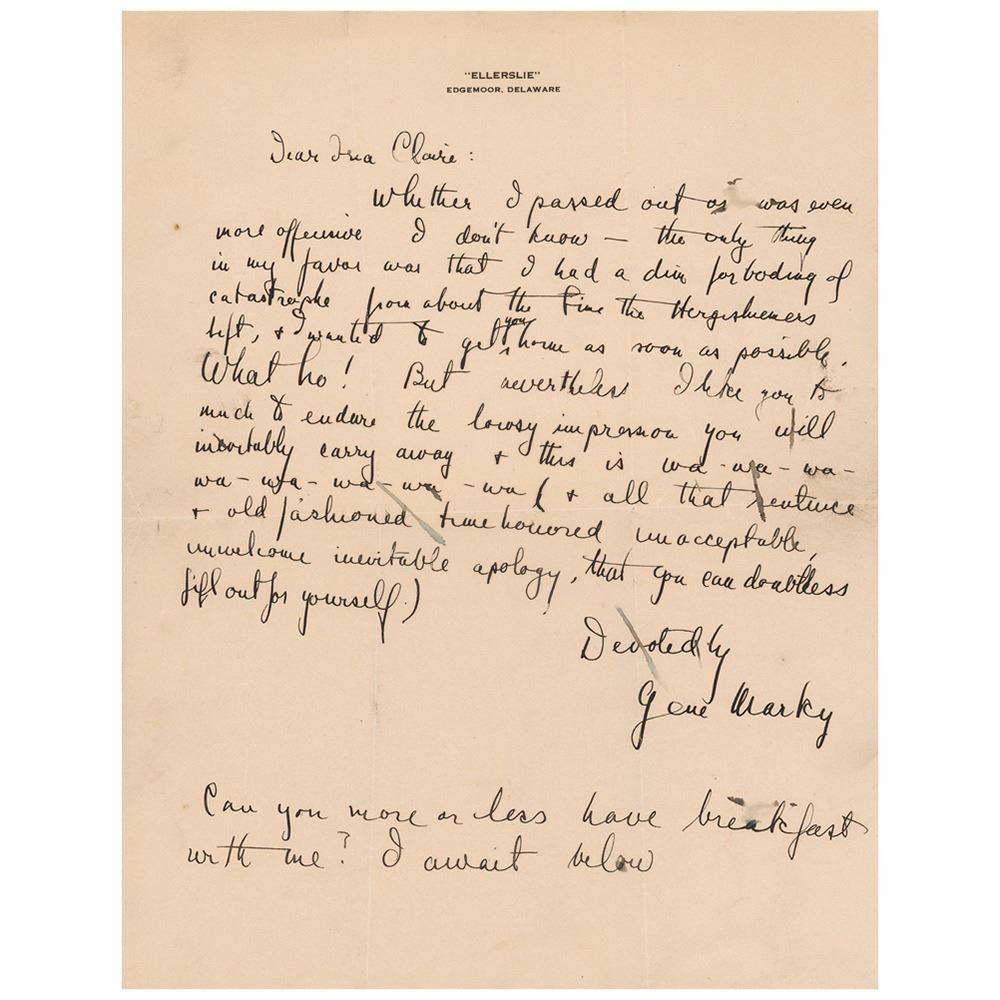 "ELLERSLIE"
EDGEMOOR, DELAWARE
Dear Ina Claire:
Whether I passed out or was even
more offensive I don't know — the only thing
in my favor was that I had a dim forboding of
catastrophe from about the time the Hergesheimers
left, + I wanted to get you home as soon as possible.
What ho! But nevertheless I like you to
much to endure the lowsy impression you will
inevitably carry away + this is wa-wa-wa-
wa-wa-wa-wa-wa (+ all that sentence
+ old fashioned time honored unacceptable,
unwelcome inevitable apology, that you can doubtless
fill out for yourself.)
Devotedly
Gene Marky
Can you more or less have breakfast
with me? I await below